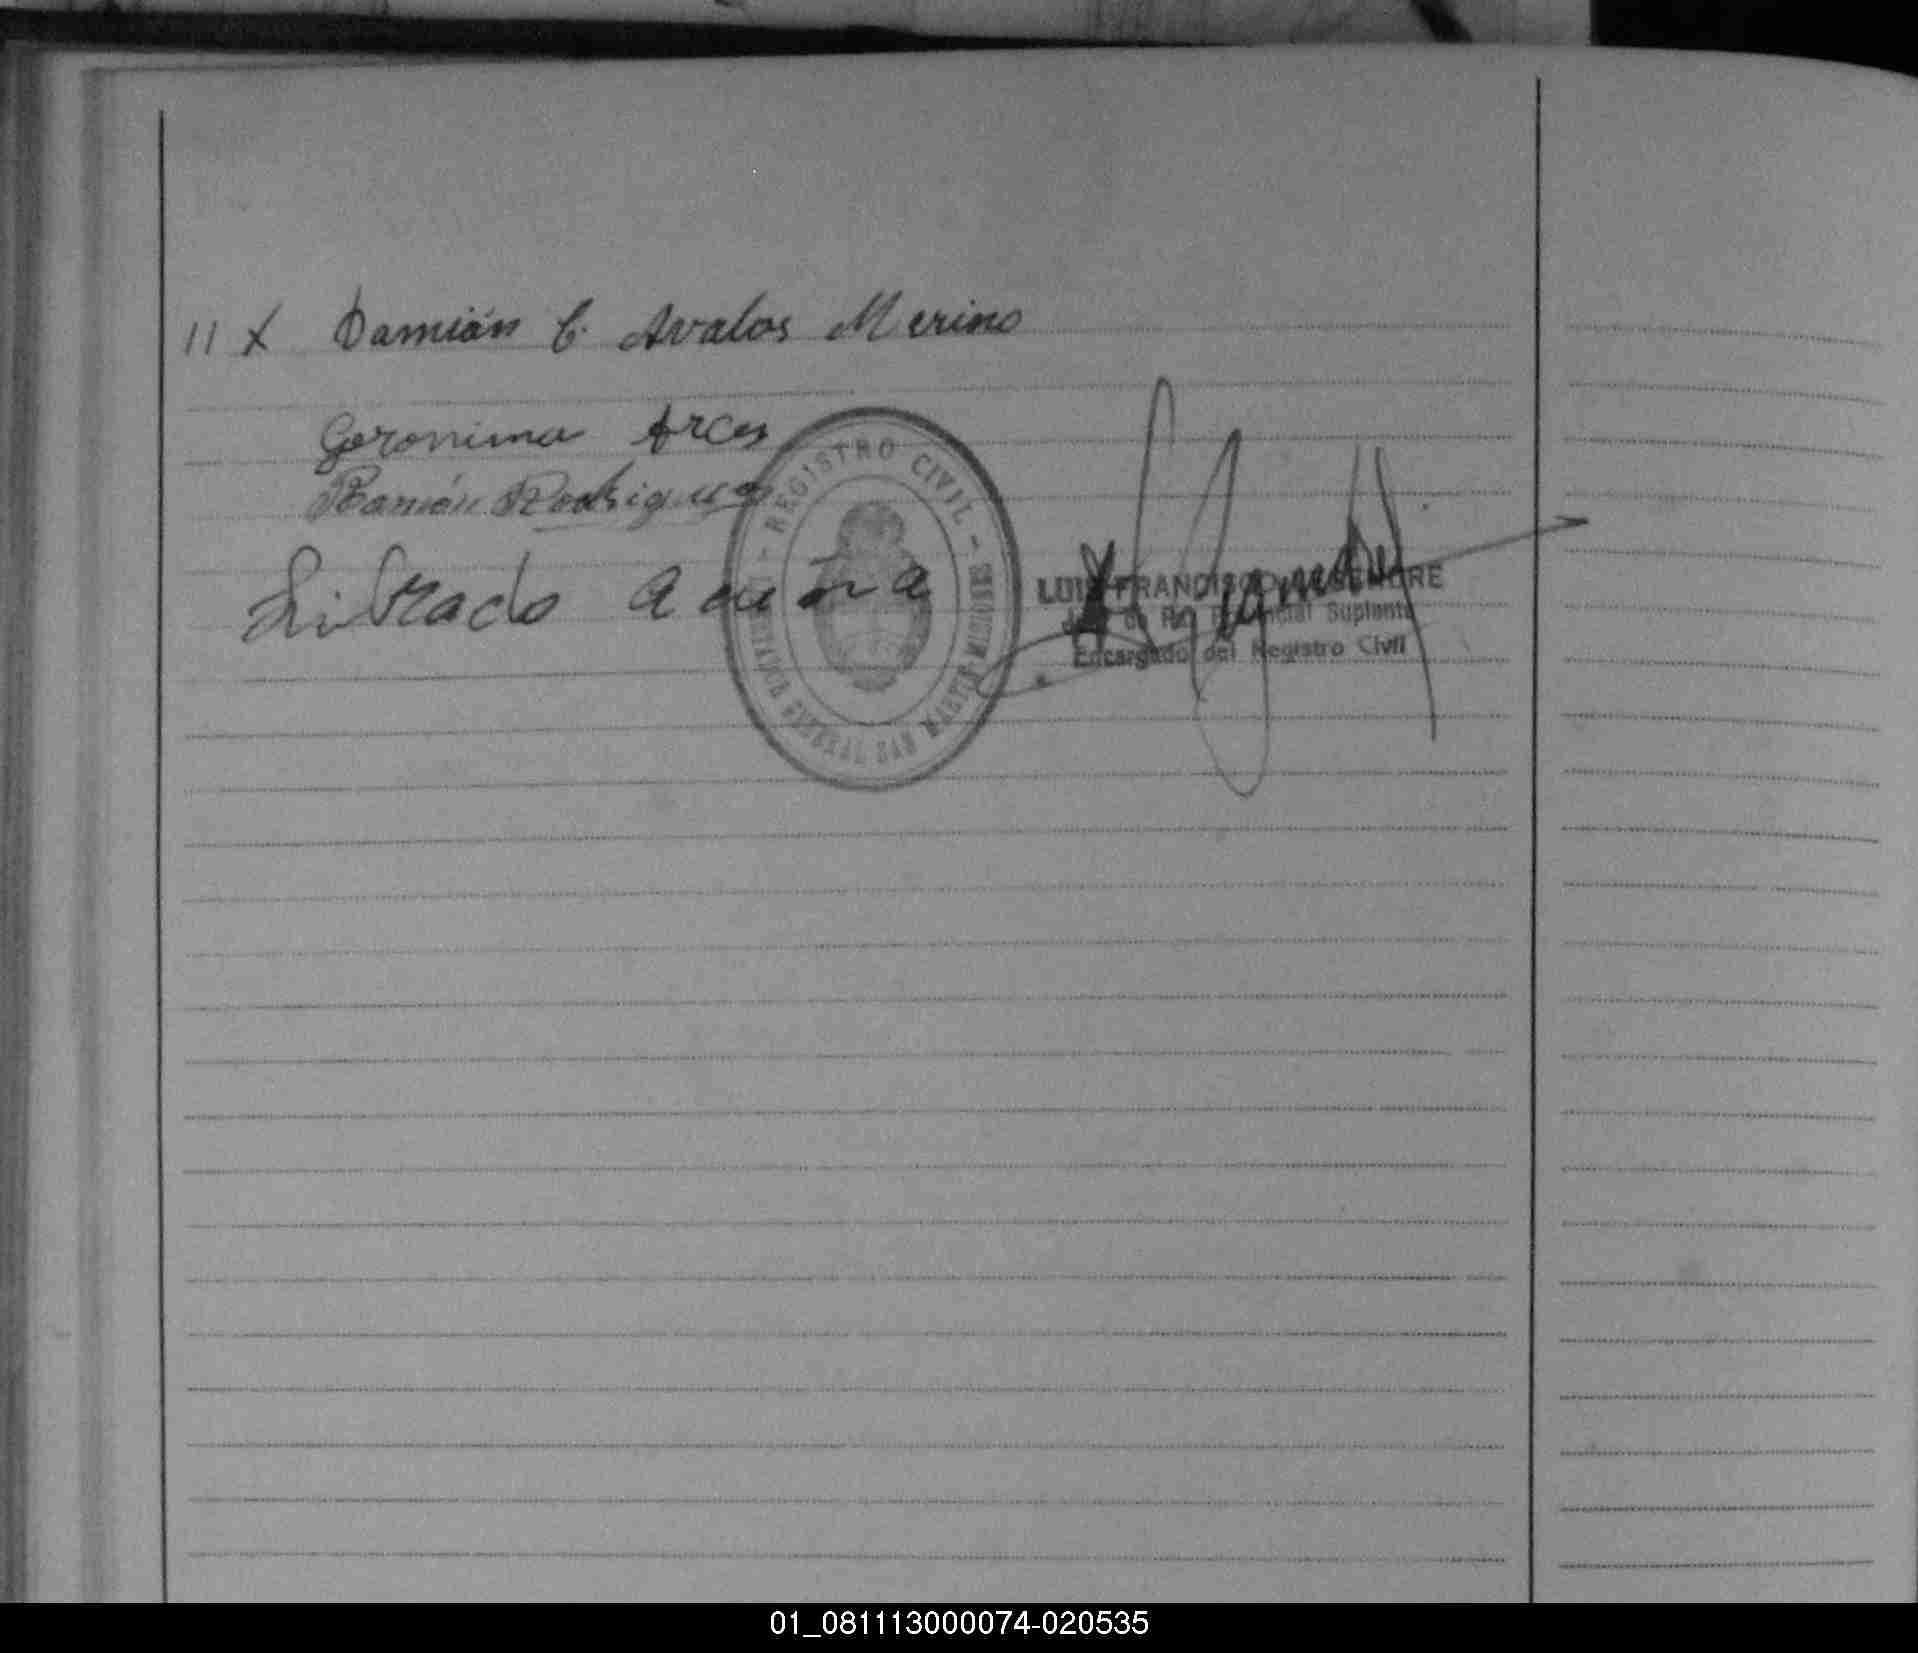 11 X Damián C. Avalos Merino
Geronima Arce
Ramón Rodriguez
Librado Acuña
REGISTRO CIVIL - MISIONES
GENERAL SAN MARTIN
LUIS FRANCISCO
Juez de Paz Provincial Suplente
Encargado del Registro Civil
01_081113000074-020535